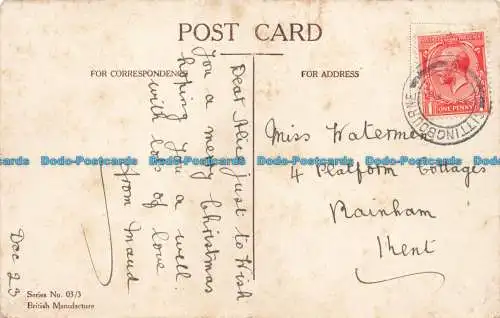 POST CARD
FOR CORRESPONDENCE
FOR ADDRESS
Dear Alic just to Wish
You a merry Christmas
hoping You a well.
with lots of love
from Maud
Dec 23
Series No. 03/3
British Manufacture
ONE PENNY
SITTINGBOURNE
Miss Waterman
4 Platform Cottages
Rainham
Kent
Dodo-Postcards Dodo-Postcards Dodo-Postcards Dodo-Postcards